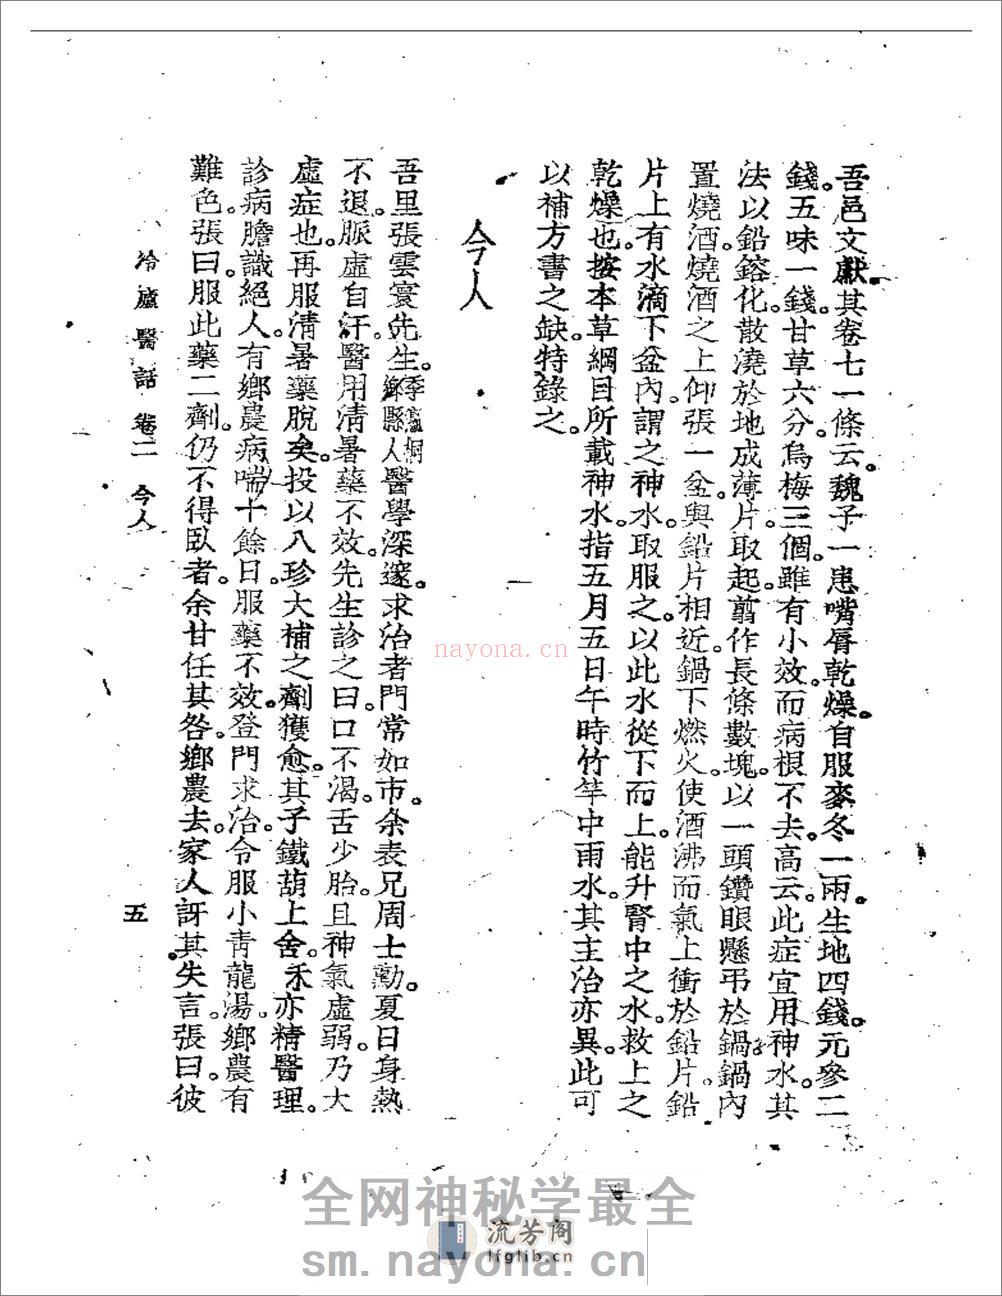 吾邑文獻。其卷七一條云。魏子一患嘴脣乾燥。自服麥冬一兩。生地四錢。元參二
錢。五味一錢。甘草六分。烏梅三個。雖有小效。而病根不去。高云。此症宜用神水。其
法以鉛鎔化散澆於地成薄片。取起翦作長條數塊。以一頭鑽眼懸弔於鍋。鍋內
置燒酒。燒酒之上仰張一盆與鉛片相近。鍋下燃火。使酒沸而氣上衝於鉛片。鉛
片上有水滴下盆內。謂之神水。取服之。以此水從下而上。能升腎中之水。救上之
乾燥也。按本草綱目所載神水。指五月五日午時竹竿中雨水。其主治亦異。此可
以補方書之缺。特錄之。
今人
吾里張雲寰先生。季瀛桐鄉縣人醫學深邃。求治者。門常如市。余表兄周士勳。夏日身熱
不退。脈虛自汗。醫用清暑藥不效。先生診之曰。口不渴。舌少胎。且神氣虛弱。乃大
虛症也。再服清暑藥脫矣。投以八珍大補之劑獲愈。其子鐵葫上舍。禾亦精醫理。
診病膽識絕人。有鄉農病喘十餘日。服藥不效。登門求治。令服小青龍湯。鄉農有
難色。張曰。服此藥二劑。仍不得臥者。余甘任其咎。鄉農去。家人訝其失言。張曰。彼
冷廬醫話 卷二 今人
五
nayona.cn
全网神秘学最全
流芳阁
lfglib.cn
sm.nayona.cn